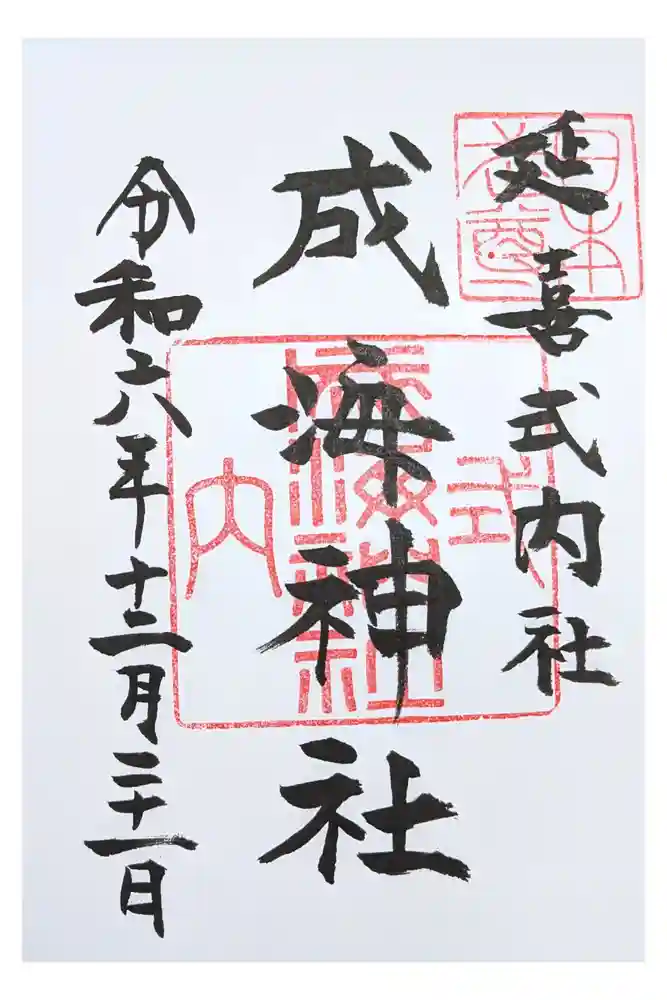 延喜式内社
成海神社
令和六年十二月二十一日
日本武尊
式
成海神社
内